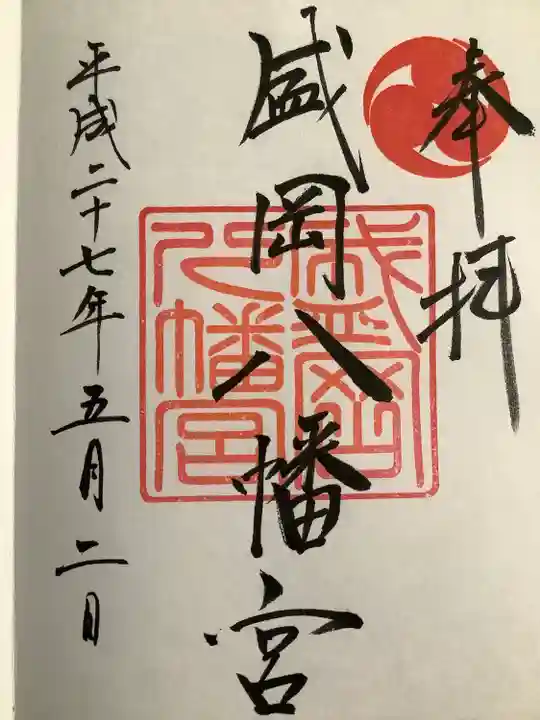 奉拝
盛岡八幡宮
平成二十七年五月二日
盛岡八幡宮